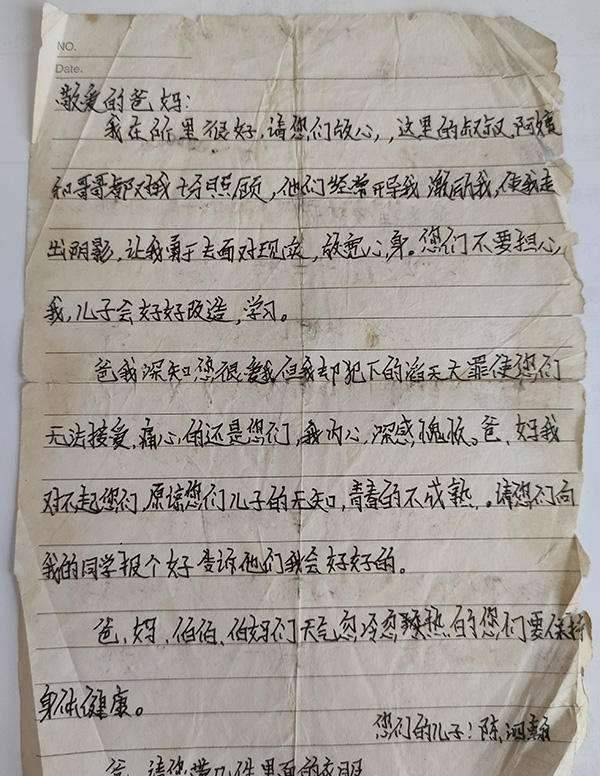 NO.
Date.
敬爱的爸妈:
我在所里很好,请您们放心,,这里的叔叔,阿姨
和哥哥都对我十分照顾,他们经常开导我激励我,使我走
出阴影,让我勇于去面对现实,放宽心,身。您们不要担心,
我,儿子会好好改造,学习。
爸我深知您很爱我但我却犯下的滔天大罪使您们
无法接受,痛心,的还是您们,我内心,深感,愧疚。爸、妈我
对不起您们,原谅您们儿子的无知,青春的不成熟,。请您们向
我的同学报个好告诉他们我会好好的。
爸、妈、伯伯、伯妈们天气忽冷忽热的您们要保持
身体健康。
您们的儿子:陈泗翰
爸,请您带几件里面的衣服